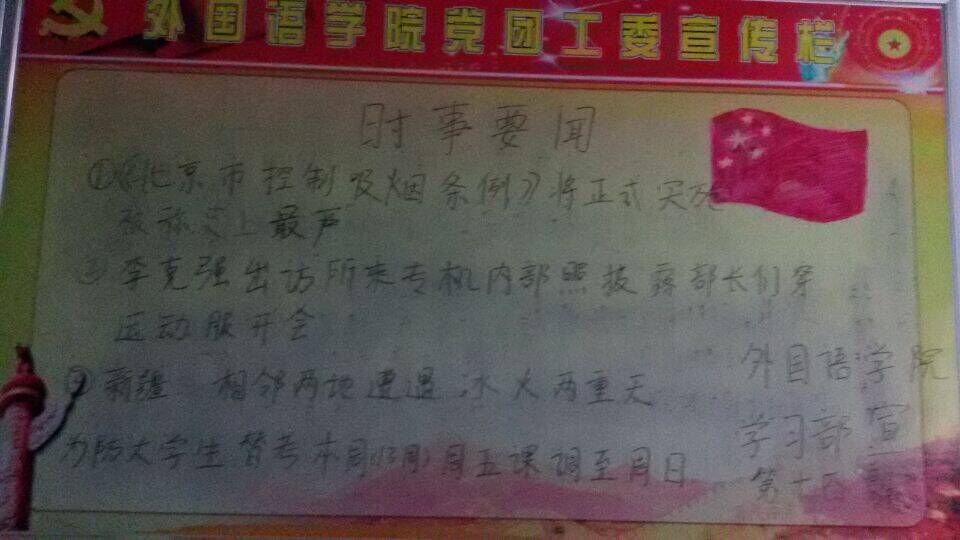 外国语学院党团工委宣传栏
时事要闻
①《北京市控制及烟条例》将正式实施
被称史上最严
② 李克强出访所乘专机内部照披露部长们穿
运动服开会
③新疆 相邻两地遭遇冰火两重天
为防大学生替考本周 周五课调至周日
外国语学院
学习部 宣
第十